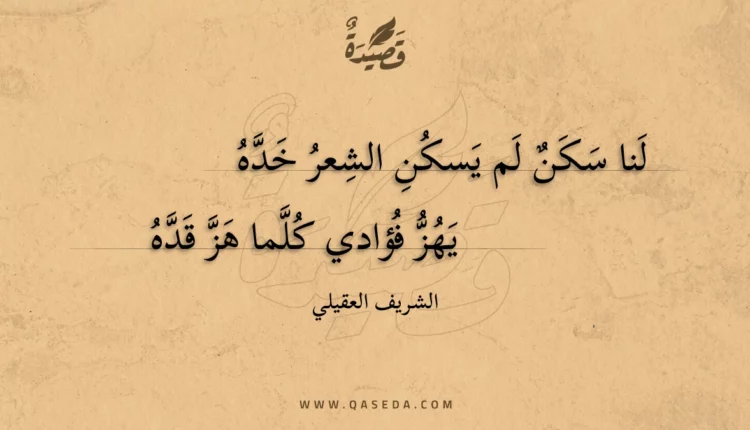 قَصِيْدَةٌ
لَنا سَكَنٌ لَم يَسكُنِ الشِعرُ خَدَّهُ
يَهُزُّ فُؤادي كُلَّما هَزَّ قَدَّهُ
الشريف العقيلي
WWW.QASEDA.COM